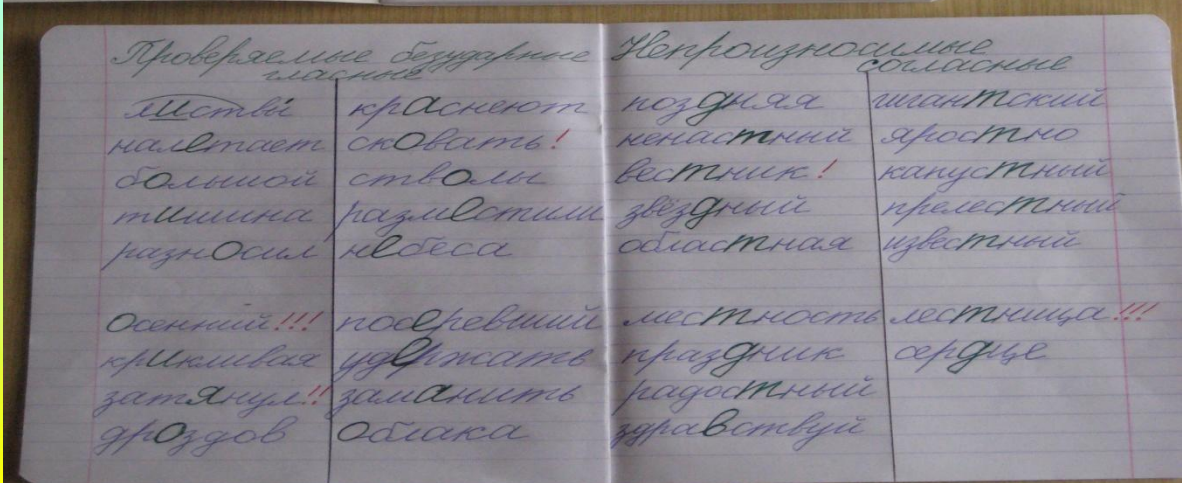 Проверяемые безударные
гласные
листвы
налетает
большой
тишина
разносил
осенний!!!
крикливая
затянул!!
дроздов
краснеют
сковать!
стволы
разместили
небеса
посеревший
удержать
заманить
облака
Непроизносимые
согласные
поздняя
ненастный
вестник!
звёздный
областная
местность
праздник
радостный
здравствуй
гигантский
яростно
капустный
прелестный
известный
лестница!!!
сердце